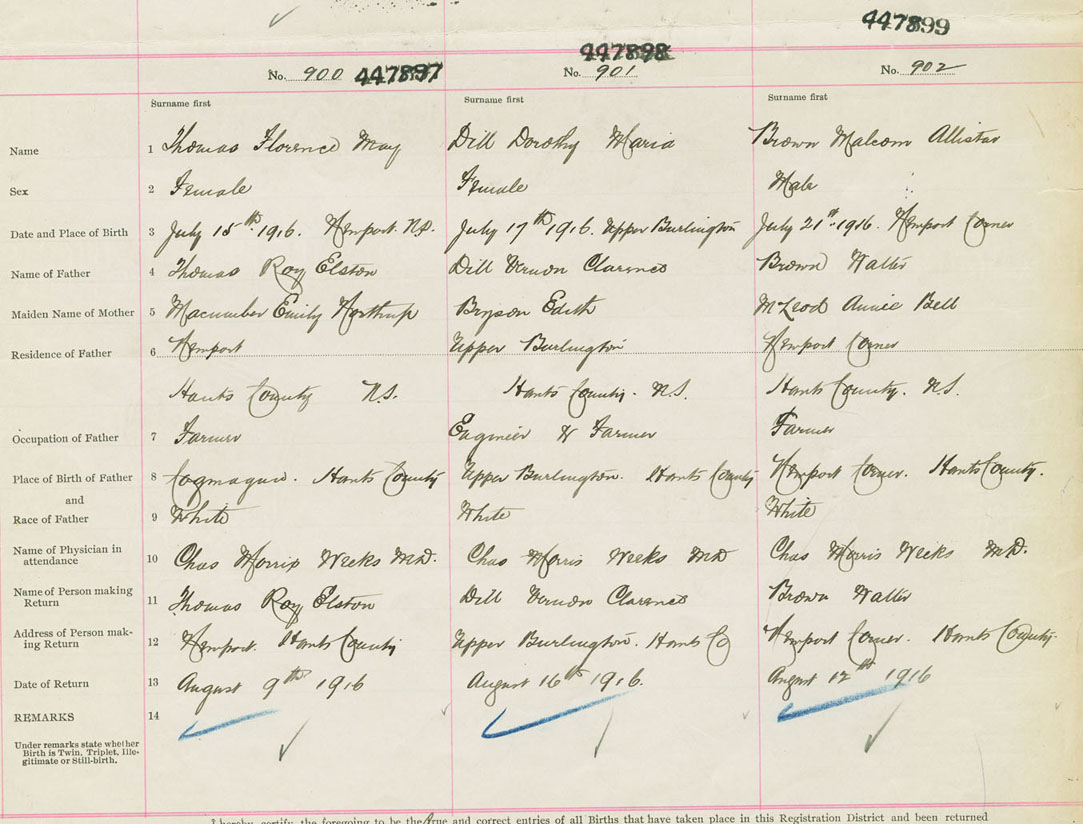 447899
447898
No. 900 447897 No. 901 No. 902
Surname first Surname first Surname first
Name 1 Thomas Florence May Dill Dorothy Maria Brown Malcom Allistar
Sex 2 Female Female Male
Date and Place of Birth 3 July 15th 1916. Newport N.S. July 17th 1916. Upper Burlington July 21st 1916. Newport Corner
Name of Father 4 Thomas Roy Elston Dill Vernon Clarence Brown Walter
Maiden Name of Mother 5 Macumber Emily Northrup Bryson Edith McLeod Annie Bell
Residence of Father 6 Newport Upper Burlington Newport Corner
Hants County N.S. Hants County. N.S. Hants County. N.S.
Occupation of Father 7 Farmer Engineer & Farmer Farmer
Place of Birth of Father 8 Cogmagun. Hants County Upper Burlington. Hants County Newport Corner. Hants County.
and
Race of Father 9 White White White
Name of Physician in
attendance 10 Chas Morris Weeks M.D. Chas Morris Weeks MD Chas Morris Weeks M.D.
Name of Person making
Return 11 Thomas Roy Elston Dill Vernon Clarence Brown Walter
Address of Person mak-
ing Return 12 Newport. Hants County Upper Burlington. Hants Co Newport Corner. Hants County.
Date of Return 13 August 9th 1916 August 16th 1916. August 12th 1916
REMARKS 14
Under remarks state whether
Birth is Twin, Triplet, Ille-
gitimate or Still-birth.
I hereby certify the foregoing to be the true and correct entries of all Births that have taken place in this Registration District and been returned